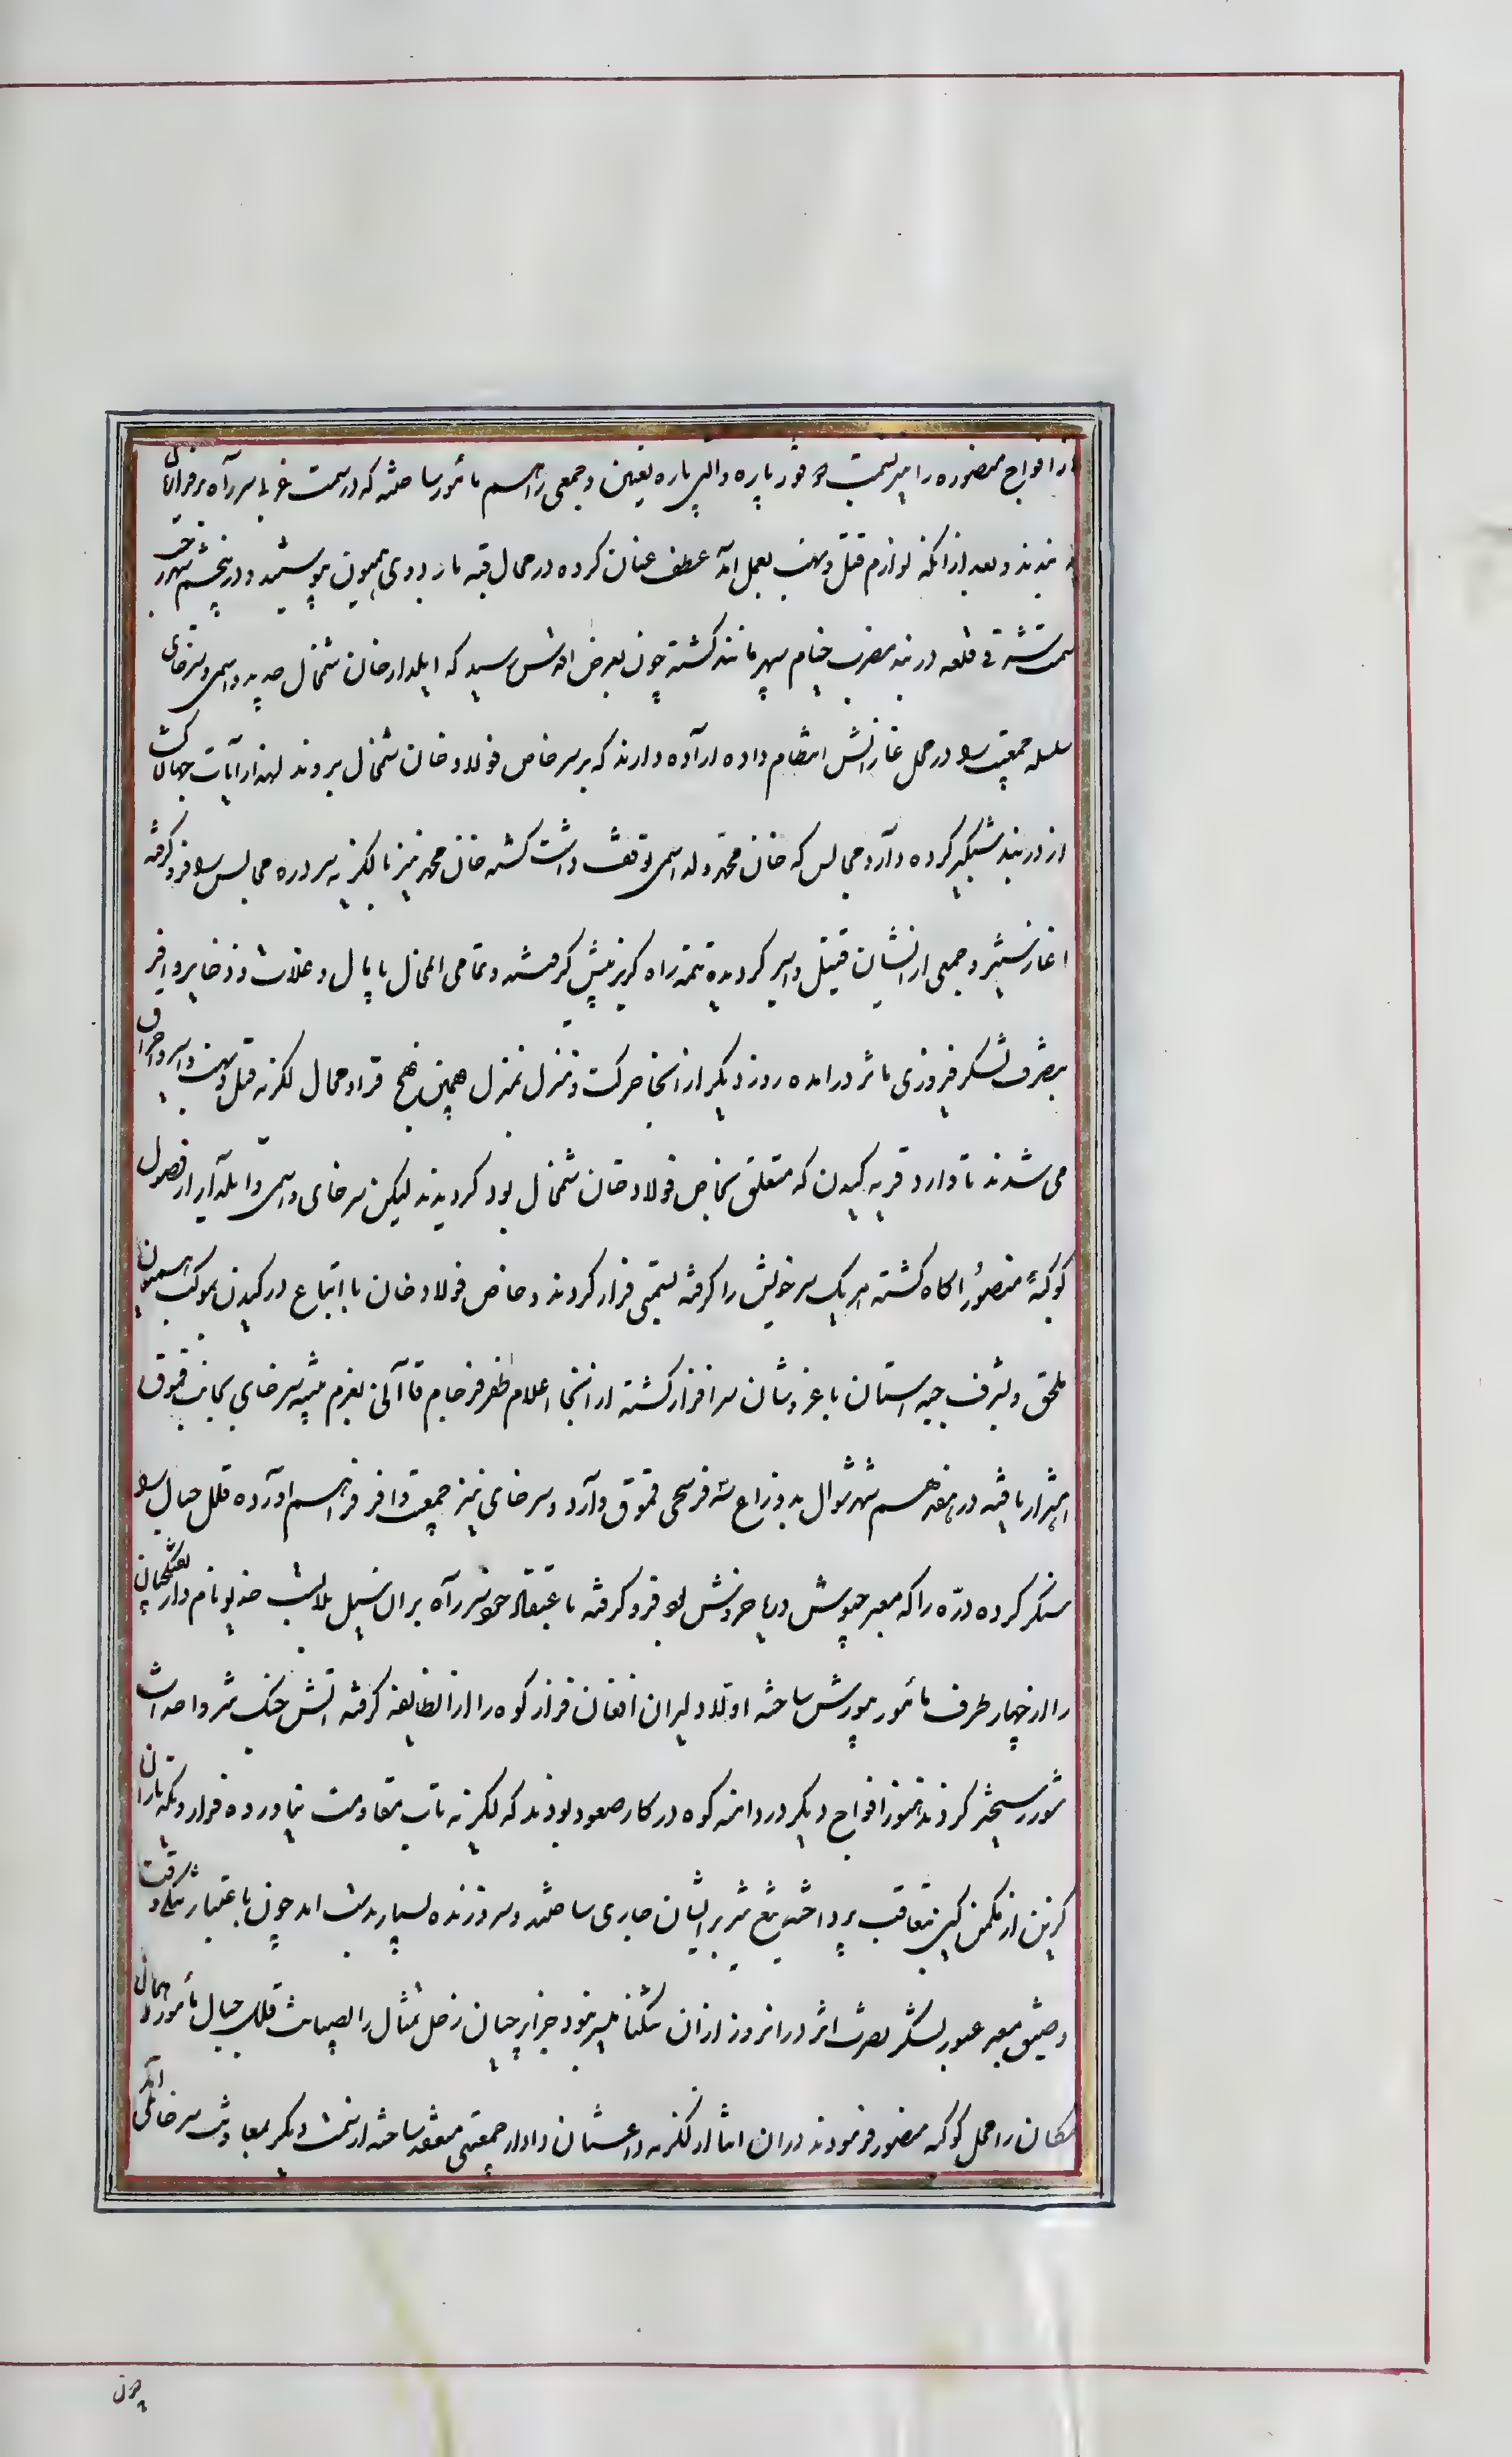 را افواج منصوره را میر بسمت دوقوز پاره والپی پاره تعیین و جمعی را هم مأمور ساختند که در سمت غربی سر راه بر فراریان
بندند و بعد از آنکه لوازم قتل و نهب بعمل آمد عطف عنان کرده در محال قبه باردوی همیون پیوستند و در پنجم شهر
سمت شرقی قلعه دربند مضرب خیام سپهر مانند گشته چون بعرض اقدس رسید که ایلدار خان شمخال جدید واسمی و سرخای
سلسله جمعیت را در محل غازانش انتظام داده اراده دارند که بر سر خاص فولاد خان شمخال بروند لهذا رایات جهانگشا
از دربند شبگیر کرده وارد مجالس که خان محمد ولد اسمی توقف داشت گشته خان محمد نیز با لکزیه سر دره مجالس را فرو گرفته
آغاز ستیز و جمعی از ایشان قتیل و اسیر گردیده تتمه راه گریز پیش گرفتند و تمامی المحال پایمال و غلات و ذخایر وافر
بتصرف لشکر فیروزی مآثر درآمده روز دیگر از آنجا حرکت و منزل بمنزل همین نهج قرا و محال لکزیه قتل و نهب و اسر و احراق
می شدند تا وارد قریه کیدن که متعلق بخاص فولاد خان شمخال بود گردیدند لیکن سرخای واسمی و ایلدار از وصول
کوکبهٔ منصور آگاه گشته هر یک سر خویش را گرفته بسمتی فرار کردند و خاص فولاد خان با اتباع در کیدن بموکب همیون
ملحق و بشرف جبهه آستان با عز و شان سرافراز گشته از آنجا اعلام ظفر فرجام قاآنی بعزم تنبیه سرخای بجانب قموق
اهتزاز یافته در هفدهم شهر شوال بدوزاع سه فرسخی قموق وارد و سرخای نیز جمعیت وافر فراهم آورده قلل جبال را
سنگر کرده دره را که معبر جیوش دریا خروش بود فرو گرفته باعتقاد خود سر راه بر آن سیل بلا بست خدیو نامدار تفنگچیان
را از چهار طرف مأمور بیورش ساخته اولا دلیران افغان فراز کوه را از آنطایفه گرفته آتش جنگ تیز و احداث
شور رستخیز کردند هنوز افواج دیگر در دامنه کوه در کار صعود بودند که لکزیه تاب مقاومت نیاورده فرار و یکه تازان
گزین از مکمن کین بتعاقب پرداخته تیغ تیز بر ایشان جاری ساختند و سر و زنده بسیار بدست آمد چون باعتبار تنگی وقت
و ضیق معبر عبور لشکر نصرت اثر در آنروز از آن تنگنا میسر نبود جزایرچیان زحل تمثال را بصیانت قلل جبال مأمور و همان
مکان را محل کوکبه منصور فرمودند در آن اثنا از لکزیه داغستان و اوار جمعیتی منعقد ساخته از سمت دیگر بمعاونت سرخای می آمد
چون